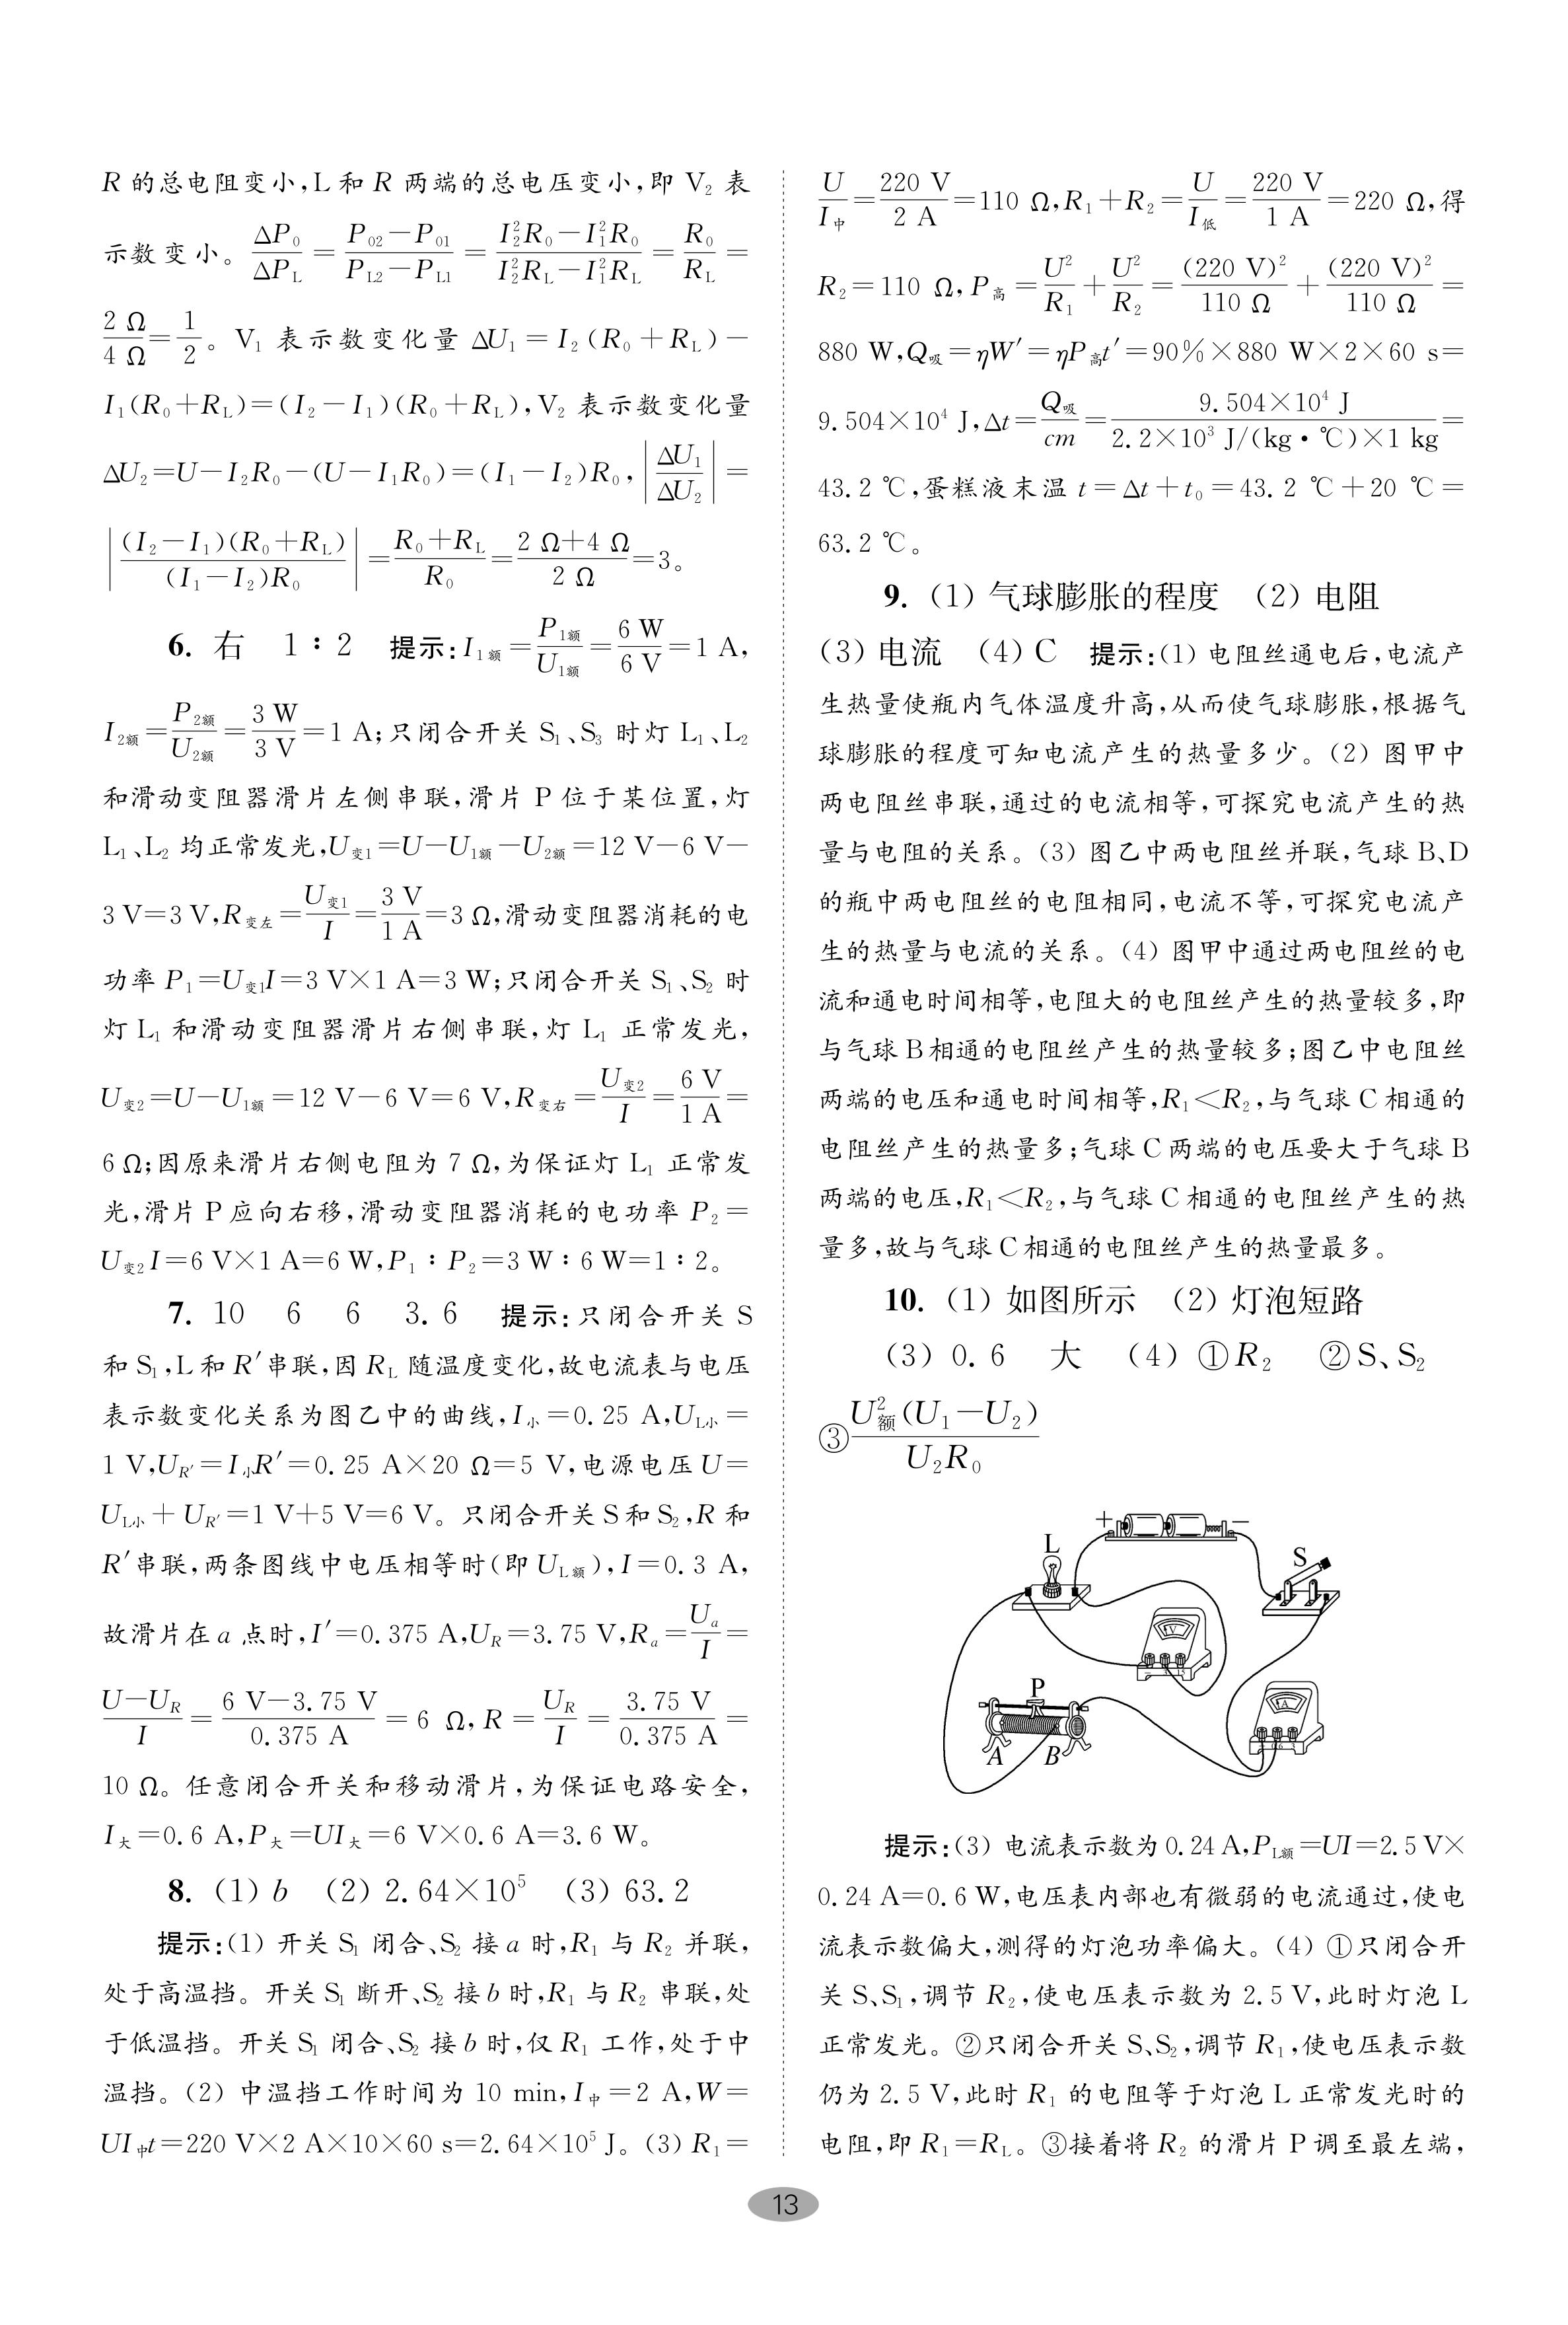 R 的总电阻变小,L 和 R 两端的总电压变小,即 V₂ 表
示数变小。ΔP₀/ΔP_L = (P₀₂−P₀₁)/(P_L2−P_L1) = (I₂²R₀−I₁²R₀)/(I₂²R_L−I₁²R_L) = R₀/R_L =
2 Ω/4 Ω = 1/2。V₁ 表示数变化量 ΔU₁ = I₂(R₀+R_L)−
I₁(R₀+R_L)=(I₂−I₁)(R₀+R_L),V₂ 表示数变化量
ΔU₂=U−I₂R₀−(U−I₁R₀)=(I₁−I₂)R₀,|ΔU₁/ΔU₂|=
|(I₂−I₁)(R₀+R_L)/((I₁−I₂)R₀)|=(R₀+R_L)/R₀=(2 Ω+4 Ω)/2 Ω=3。
6. 右 1∶2 提示:I_1额=P_1额/U_1额=6 W/6 V=1 A,
I_2额=P_2额/U_2额=3 W/3 V=1 A;只闭合开关 S₁、S₃ 时灯 L₁、L₂
和滑动变阻器滑片左侧串联,滑片 P 位于某位置,灯
L₁、L₂ 均正常发光,U_变1=U−U_1额−U_2额=12 V−6 V−
3 V=3 V,R_变左=U_变1/I=3 V/1 A=3 Ω,滑动变阻器消耗的电
功率 P₁=U_变1I=3 V×1 A=3 W;只闭合开关 S₁、S₂ 时
灯 L₁ 和滑动变阻器滑片右侧串联,灯 L₁ 正常发光,
U_变2=U−U_1额=12 V−6 V=6 V,R_变右=U_变2/I=6 V/1 A=
6 Ω;因原来滑片右侧电阻为 7 Ω,为保证灯 L₁ 正常发
光,滑片 P 应向右移,滑动变阻器消耗的电功率 P₂=
U_变2I=6 V×1 A=6 W,P₁∶P₂=3 W∶6 W=1∶2。
7. 10 6 6 3.6 提示:只闭合开关 S
和 S₁,L 和 R′串联,因 R_L 随温度变化,故电流表与电压
表示数变化关系为图乙中的曲线,I_小=0.25 A,U_L小=
1 V,U_R′=I_小R′=0.25 A×20 Ω=5 V,电源电压 U=
U_L小+U_R′=1 V+5 V=6 V。只闭合开关 S 和 S₂,R 和
R′串联,两条图线中电压相等时(即 U_L额),I=0.3 A,
故滑片在 a 点时,I′=0.375 A,U_R=3.75 V,R_a=U_a/I=
(U−U_R)/I=(6 V−3.75 V)/0.375 A=6 Ω,R=U_R/I=3.75 V/0.375 A=
10 Ω。任意闭合开关和移动滑片,为保证电路安全,
I_大=0.6 A,P_大=UI_大=6 V×0.6 A=3.6 W。
8. (1) b (2) 2.64×10⁵ (3) 63.2
提示:(1) 开关 S₁ 闭合、S₂ 接 a 时,R₁ 与 R₂ 并联,
处于高温挡。开关 S₁ 断开、S₂ 接 b 时,R₁ 与 R₂ 串联,处
于低温挡。开关 S₁ 闭合、S₂ 接 b 时,仅 R₁ 工作,处于中
温挡。(2) 中温挡工作时间为 10 min,I_中=2 A,W=
UI_中t=220 V×2 A×10×60 s=2.64×10⁵ J。(3) R₁=
U/I_中=220 V/2 A=110 Ω,R₁+R₂=U/I_低=220 V/1 A=220 Ω,得
R₂=110 Ω,P_高=U²/R₁+U²/R₂=(220 V)²/110 Ω+(220 V)²/110 Ω=
880 W,Q_吸=ηW′=ηP_高t′=90%×880 W×2×60 s=
9.504×10⁴ J,Δt=Q_吸/cm=9.504×10⁴ J/(2.2×10³ J/(kg·℃)×1 kg)=
43.2 ℃,蛋糕液末温 t=Δt+t₀=43.2 ℃+20 ℃=
63.2 ℃。
9. (1) 气球膨胀的程度 (2) 电阻
(3) 电流 (4) C 提示:(1) 电阻丝通电后,电流产
生热量使瓶内气体温度升高,从而使气球膨胀,根据气
球膨胀的程度可知电流产生的热量多少。(2) 图甲中
两电阻丝串联,通过的电流相等,可探究电流产生的热
量与电阻的关系。(3) 图乙中两电阻丝并联,气球 B、D
的瓶中两电阻丝的电阻相同,电流不等,可探究电流产
生的热量与电流的关系。(4) 图甲中通过两电阻丝的电
流和通电时间相等,电阻大的电阻丝产生的热量较多,即
与气球 B 相通的电阻丝产生的热量较多;图乙中电阻丝
两端的电压和通电时间相等,R₁<R₂,与气球 C 相通的
电阻丝产生的热量多;气球 C 两端的电压要大于气球 B
两端的电压,R₁<R₂,与气球 C 相通的电阻丝产生的热
量多,故与气球 C 相通的电阻丝产生的热量最多。
10. (1) 如图所示 (2) 灯泡短路
(3) 0.6 大 (4) ①R₂ ②S、S₂
③U_额²(U₁−U₂)/(U₂R₀)
+ −
L
S
V
P
A
A B
提示:(3) 电流表示数为 0.24 A,P_L额=UI=2.5 V×
0.24 A=0.6 W,电压表内部也有微弱的电流通过,使电
流表示数偏大,测得的灯泡功率偏大。(4) ①只闭合开
关 S、S₁,调节 R₂,使电压表示数为 2.5 V,此时灯泡 L
正常发光。②只闭合开关 S、S₂,调节 R₁,使电压表示数
仍为 2.5 V,此时 R₁ 的电阻等于灯泡 L 正常发光时的
电阻,即 R₁=R_L。③接着将 R₂ 的滑片 P 调至最左端,
13